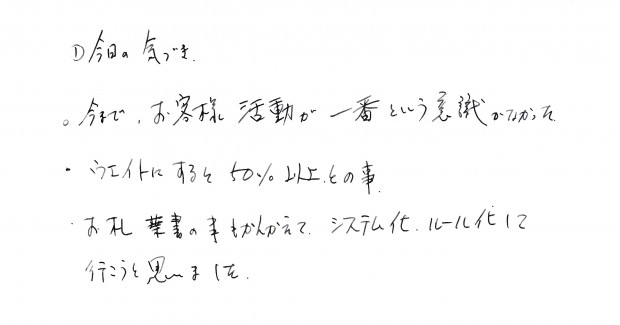 ①今日の気づき.
。今まで、お客様 活動が 一番という意識がなかった.
・ウエイトにすると 50%以上との事.
・お礼 葉書の事もかんがえて、システム化、ルール化して
行こうと思いました.